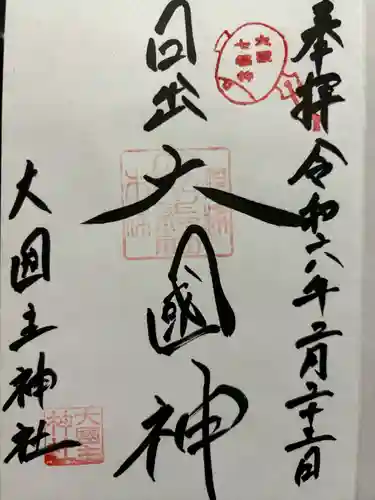 奉拝 令和六年二月二十三日
大国
七福神
日出大國神
大国主神社
大國主
神社